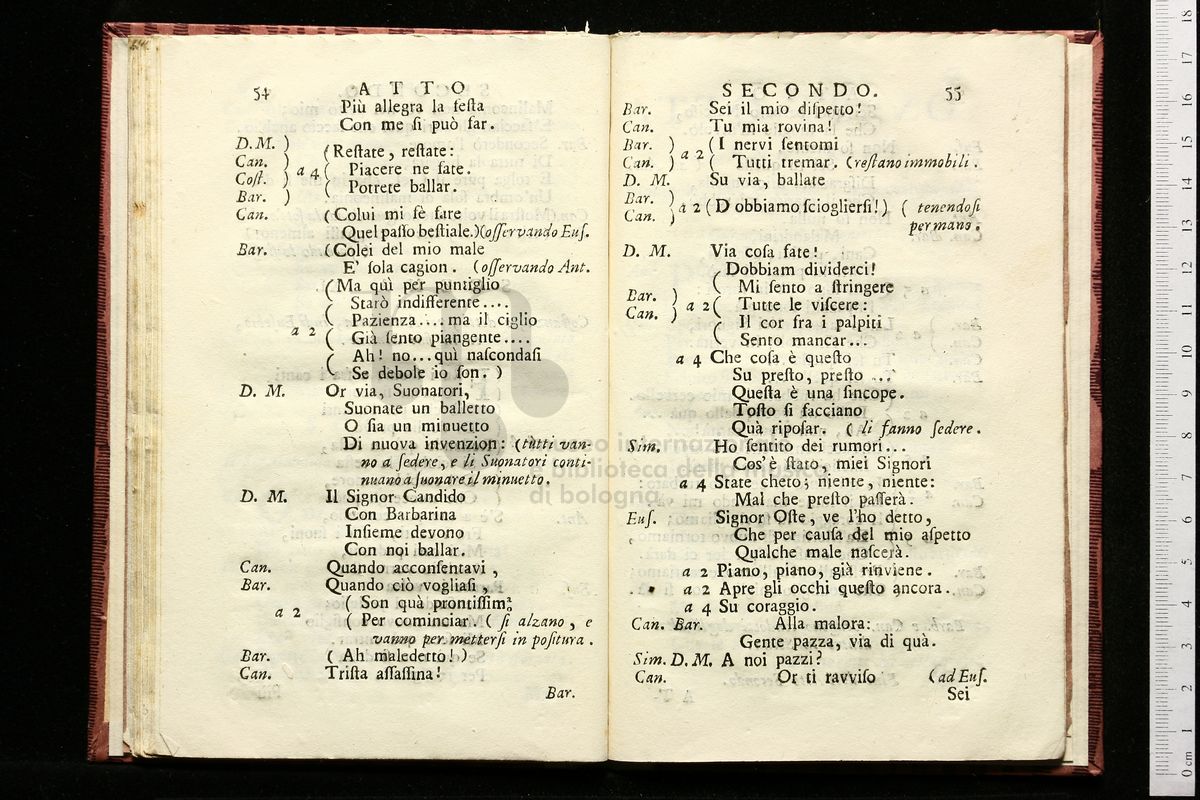 54 ATTO
Più allegra la festa
Con me si può far.
D.M. )
Can. )
Cost. )
Bar. ) a 4
( Restate, restate:
( Piacere ne fate.
( Potrete ballar.
Can. ( Colui mi fè fare
Quel passo bestiale.) (osservando Eus.
Bar. ( Colei del mio male
E' sola cagion. (osservando Ant.
a 2
( Ma quì per puntiglio
( Starò indifferente....
( Pazienza....ma il ciglio
( Già sento piangente....
( Ah! no...quì nascondasi
( Se debole io son. )
D. M. Or via, Suonatori,
Suonate un balletto
O sia un minuetto
Di nuova invenzion: (tutti van-
no a sedere, e li Suonatori conti-
nuano a suonare il minuetto.
D. M. Il Signor Candido
Con Barbarina
Insieme devono
Con noi ballar.
Can. Quando acconsentavi,
Bar. Quando ciò vogliasi,
a 2
( Son quà prontissim
( Per cominciar. ( si alzano, e
vanno per mettersi in positura.
Bar. ( Ah maledetto! )
Can. Trista assassina!
Bar.
SECONDO. 55
Bar. Sei il mio dispetto!
Can. Tu mia rovina!
Bar. )
Can. ) a 2
( I nervi sentomi
( Tutti tremar. (restano immobili.
D. M. Su via, ballate
Bar. )
Can. ) a 2 ( Dobbiamo sciogliersi!) ( tenendosi
per mano.
D. M. Via cosa fate!
Bar. )
Can. ) a 2
( Dobbiam dividerci!
( Mi sento a stringere
( Tutte le viscere:
( Il cor fra i palpiti
( Sento mancar...
a 4 Che cosa è questo
Su presto, presto ...
Questa è una sincope.
Tosto si facciano
Quà riposar. ( li fanno sedere.
Sim. Ho sentito dei rumori...
Cos'è stato, miei Signori
a 4 State cheto; niente, niente:
Mal che presto passerà.
Eus. Signor Oste, ve l'ho detto,
Che per causa del mio aspetto
Qualche male nascerà.
a 2 Piano, piano, già rinviene.
a 2 Apre gli occhi questo ancora.
a 4 Su coraggio.
Can. Bar. Alla malora:
Gente pazza, via di quà.
Sim. D. M. A noi pazzi?
Can. Or ti ravviso (ad Eus.
Sei
museo internazionale
e biblioteca della musica
di bologna
0 cm 1 2 3 4 5 6 7 8 9 10 11 12 13 14 15 16 17 18